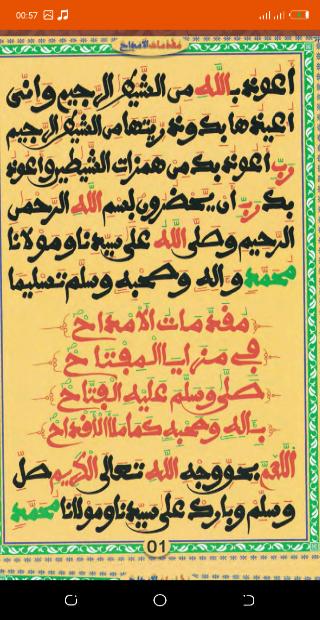 00:57
مقدمات الأمداح
أعوذ بالله من الشيطن الرجيم وإنى
أعيذها بك وذريتها من الشيطن الرجيم
رب أعوذ بك من همزات الشيطين وأعوذ
بك رب أن يحضرون بسم الله الرحمن
الرحيم وصلى الله على سيدنا ومولانا
محمد وآله وصحبه وسلم تسليما
مقدمات الأمداح
في مزايا المفتاح
صلى وسلم عليه الفتاح
بآله وصحبه كماملأ الأفداح
اللهم بحق وجه الله تعالى الكريم صل
وسلم وبارك على سيدنا ومولانا محمد
01